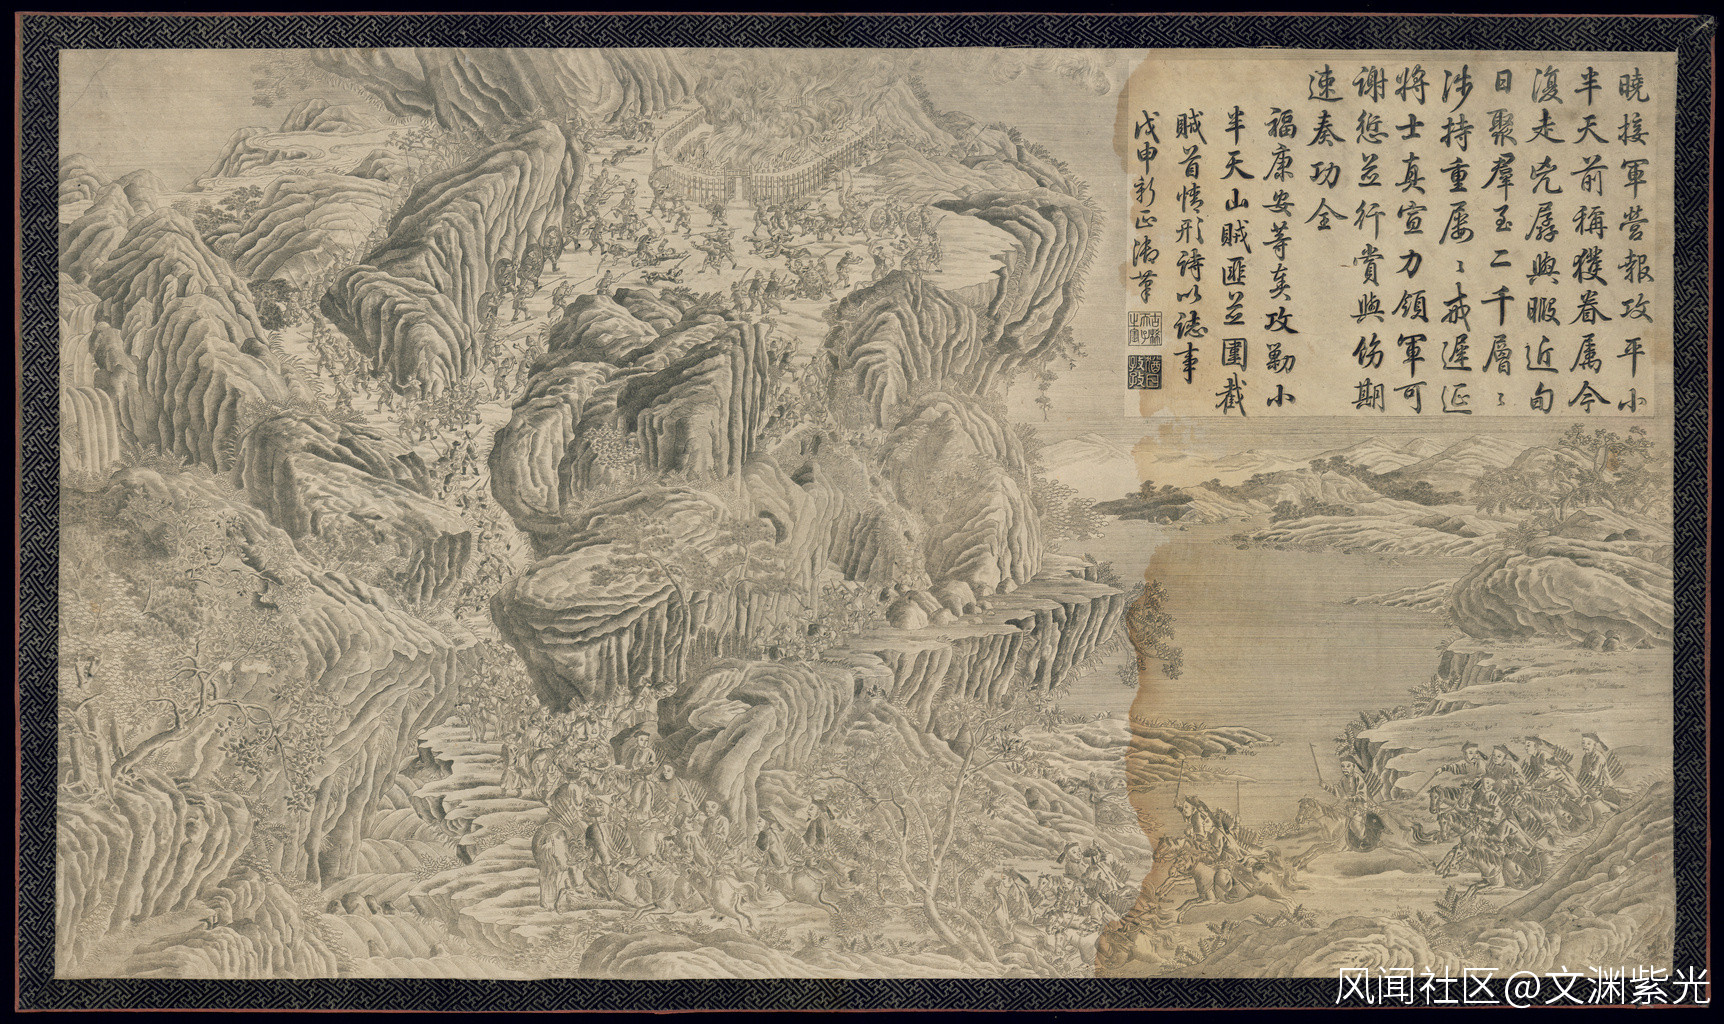 曉接軍營報攻平小
半天前稱獲眷屬今
復走兇孱與暇近旬
日聚羣至二千層〻
涉持重屢〻戒遲延
將士真宣力領軍可
謝愆並行賞與飭期
速奏功全
福康安等奏攻勦小
半天山賊匪並圍截
賊首情形詩以誌事
戊申新正御筆
古稀天子之寶
猶日孜孜
风闻社区@文渊紫光